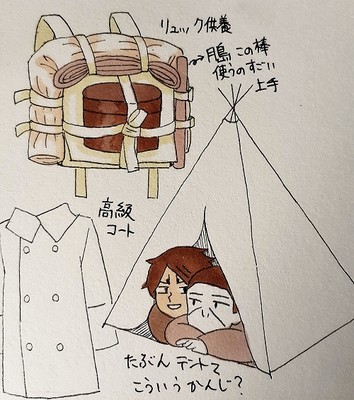 リュック供養
→月島この棒
使うのすごい
上手
高級
コート
たぶん テントて
こういうかんじ?